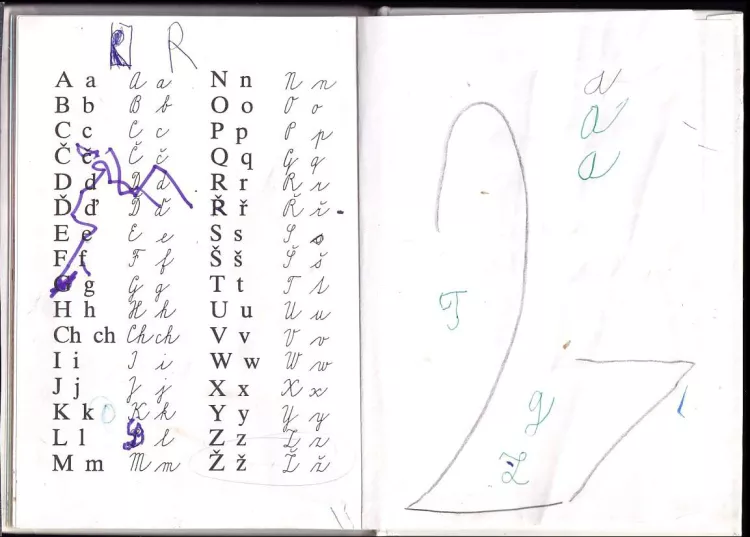 R R
A a A a N n N n
B b B b O o O o
C c C c P p P p
Č č Č č Q q Q q
D d D d R r R r
Ď ď Ď ď Ř ř Ř ř
E e E e S s S s
F f F f Š š Š š
G g G g T t T t
H h H h U u U u
Ch ch Ch ch V v V v
I i I i W w W w
J j J j X x X x
K k K k Y y Y y
L l l Z z Z z
M m M m Ž ž Ž ž
a
a
a
T
g